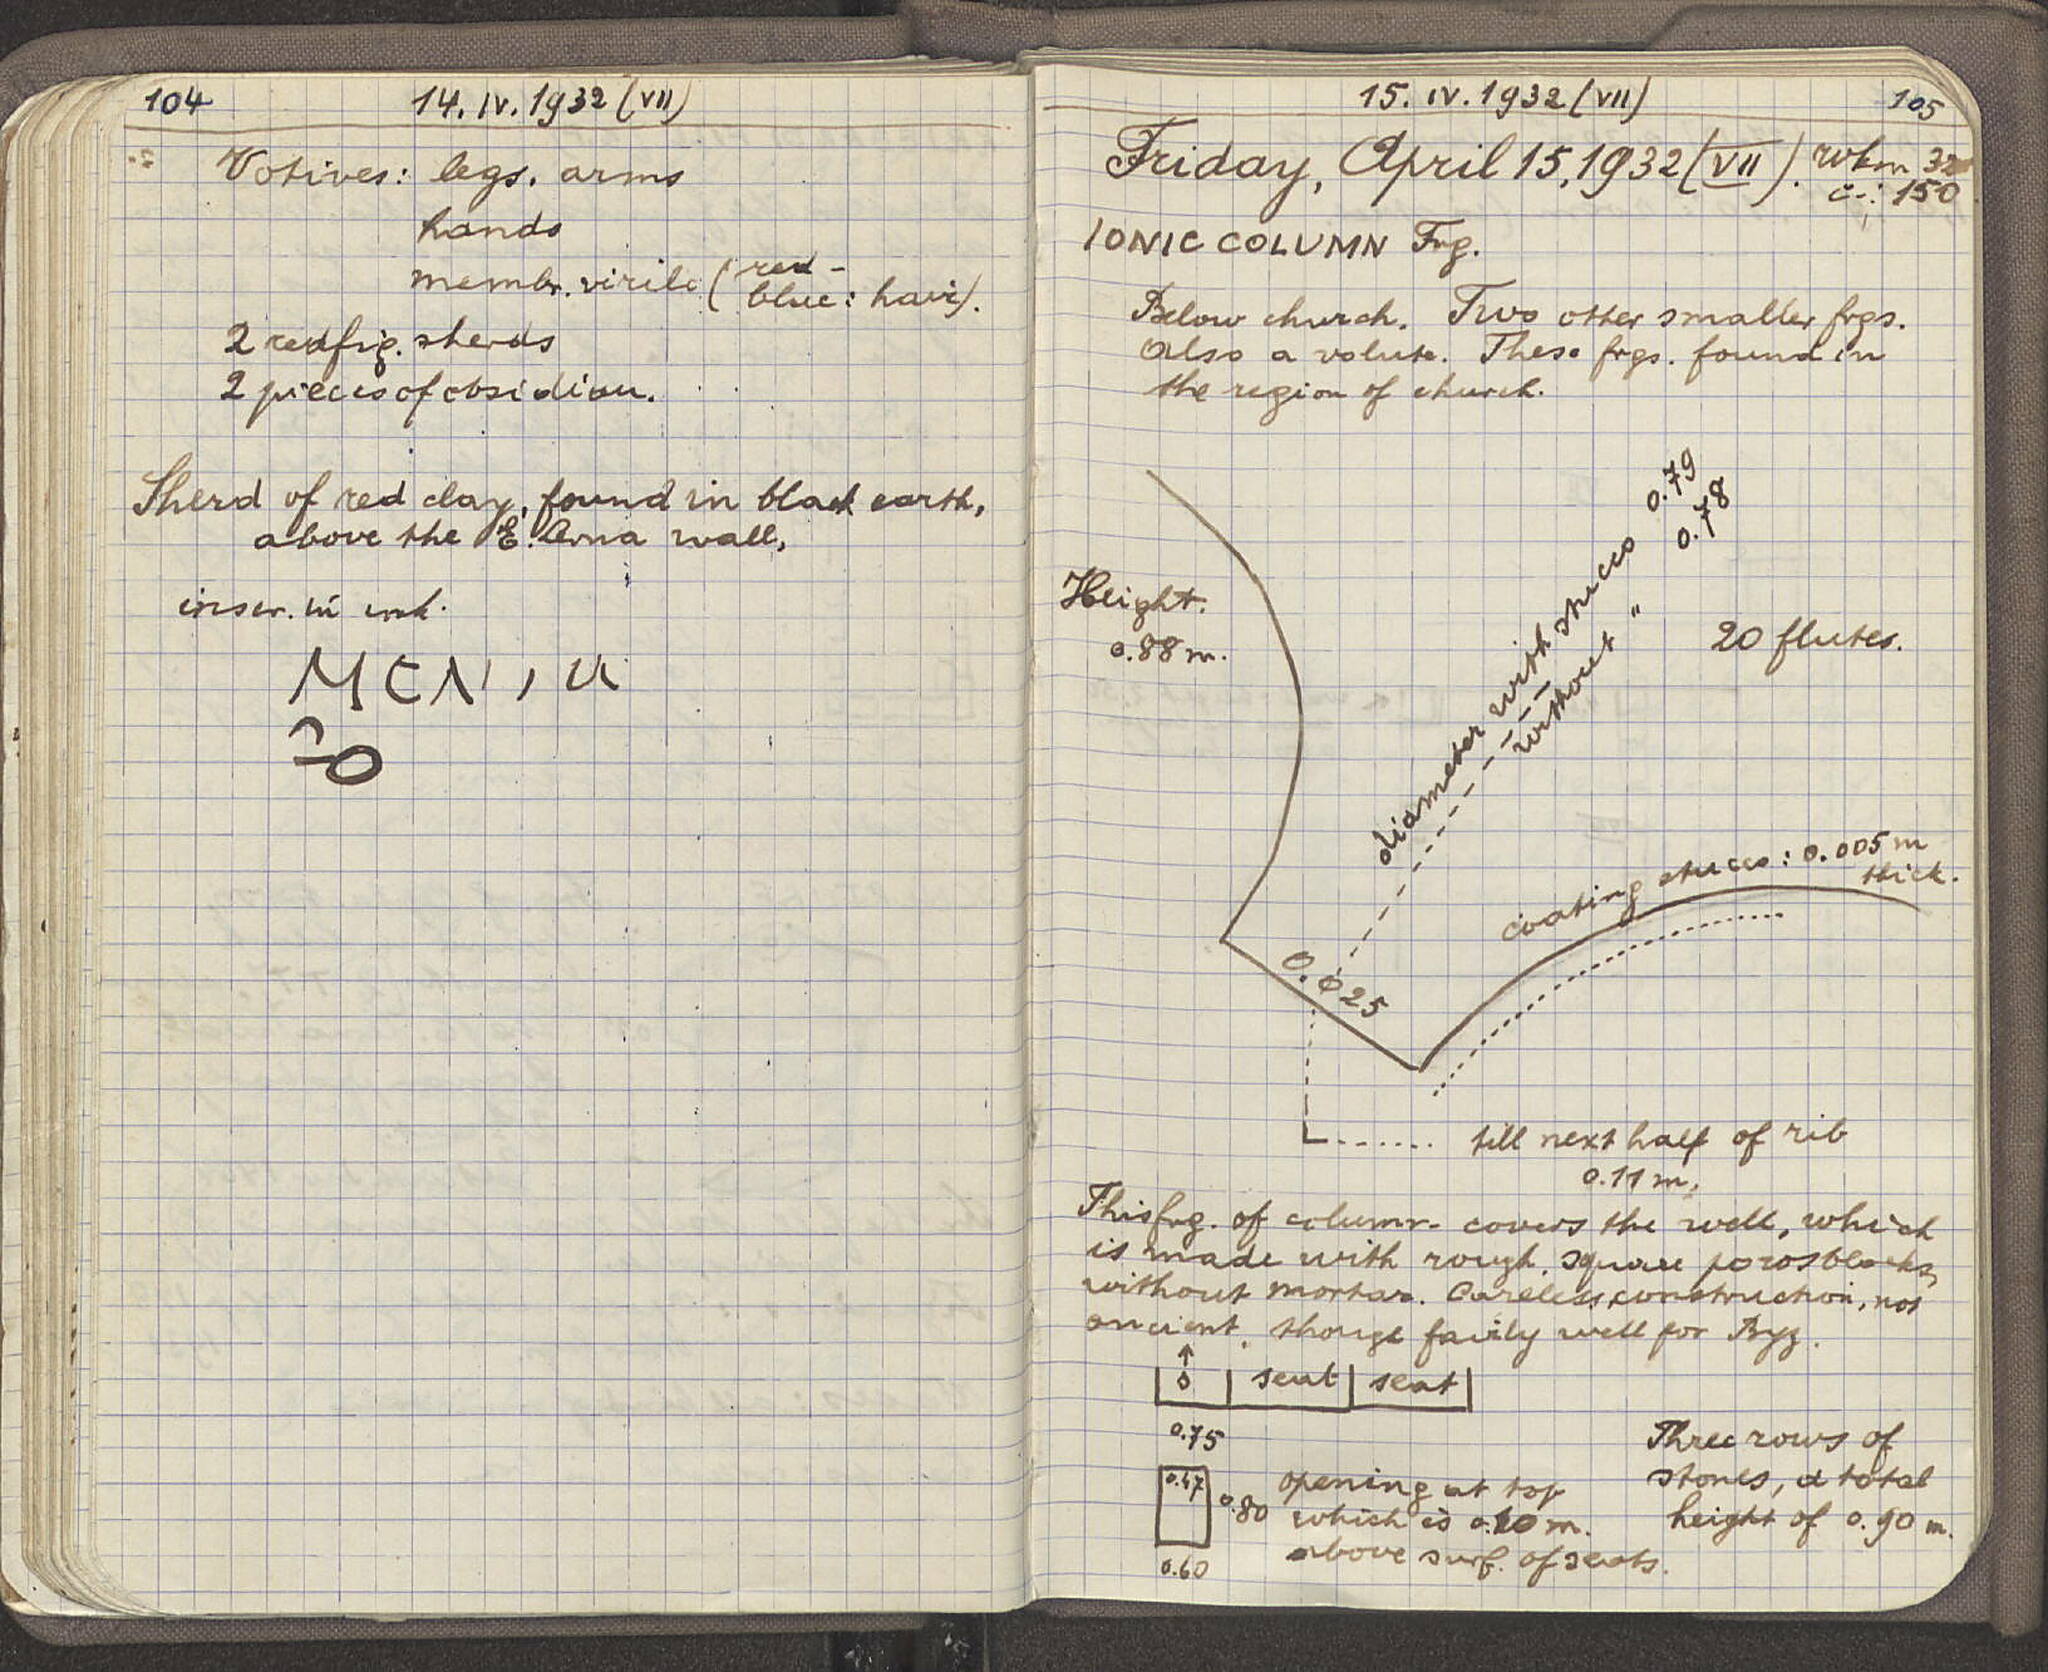 104
14. IV. 1932 (VII)
Votives: legs, arms
hands
membr. virile (red-
blue: hair).
2 redfig. sherds
2 pieces of obsidian.
Sherd of red clay, found in black earth,
above the E. wall,
inscr. in ink.
15. IV. 1932 (VII)
105
Friday, April 15, 1932 (VII). wkm 32
c-: 150
IONIC COLUMN Frg.
Below church. Two other smaller frgs.
Also a volute. These frgs. found in
the region of church.
Height.
0.88 m.
diameter with stucco 0.79
without " 0.78
20 flutes.
coating stucco: 0.005 m
thick.
0.025
till next half of rib
0.11 m.
This frg. of column covers the well, which
is made with rough, square poros blocks,
without mortar. Careless construction, not
ancient, though fairly well for Byz.
seat seat
0.75
0.47
0.80
0.60
opening at top
which is 0.20 m.
above surf. of seats.
Three rows of
stones, a total
height of 0.90 m.